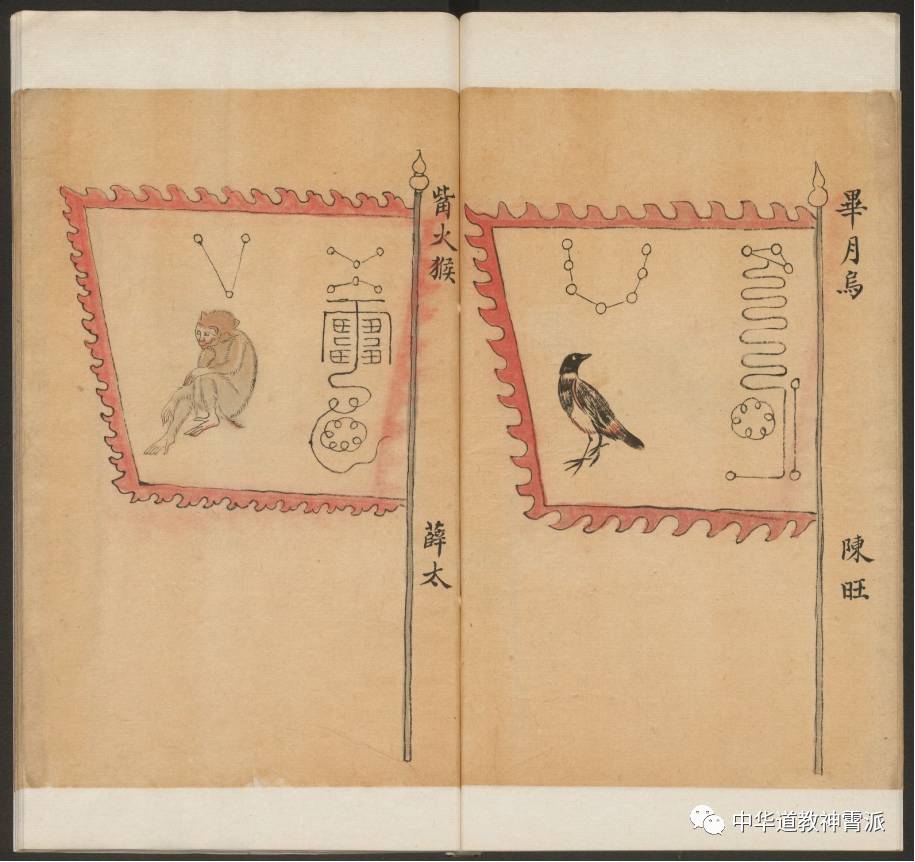 畢月烏
陳旺
觜火猴
薛太
中华道教神霄派